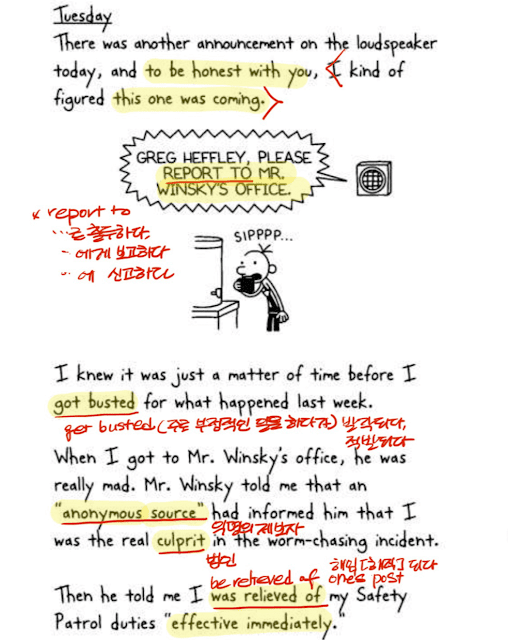 Tuesday
There was another announcement on the loudspeaker
today, and to be honest with you, I kind of
figured this one was coming.
GREG HEFFLEY, PLEASE
REPORT TO MR.
WINSKY'S OFFICE.
* report to
…로 출두하다,
-에게 보고하다
…에 신고하다
SIPPPP...
I knew it was just a matter of time before I
got busted for what happened last week.
get busted (주로 부정적인 일을 하다가) 발각되다,
적발되다
When I got to Mr. Winsky's office, he was
really mad. Mr. Winsky told me that an
"anonymous source" had informed him that I
익명의 제보자
was the real culprit in the worm-chasing incident.
범인
해임[해직]되다
be relieved of one's post
Then he told me I was relieved of my Safety
Patrol duties "effective immediately."